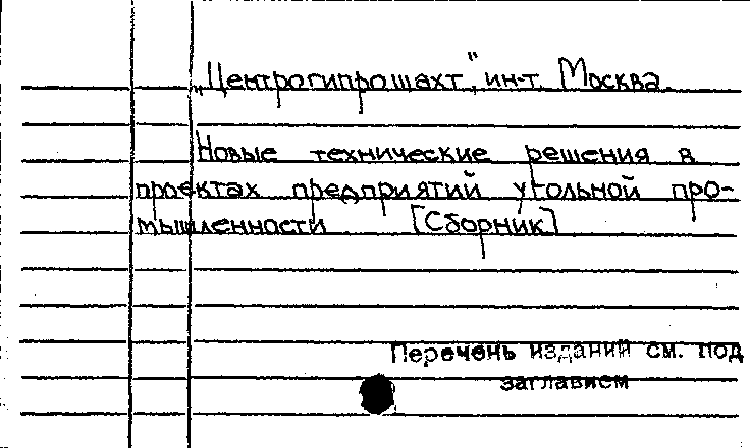 „Центрогипрошахт", ин-т. Москва.
Новые технические решения в
проектах предприятий угольной про-
мышленности [Сборник]
Перечень изданий см. под
заглавием